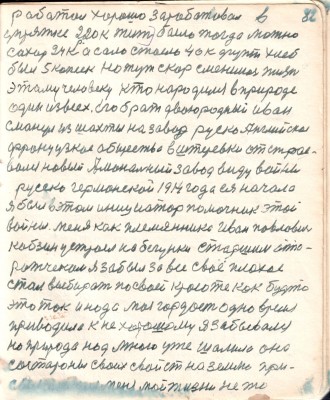 82
работал хорошо зарабатовал в
упряжке 2
сахар 24к а сало стоило 40к фунт хлеб
был 5 копеек но тут скор сменилось тизн
этому человеку кто народился в природе
один из всех. его брат двоюродный иван
сманул из шахты на завод руско Английское
французкое общество в штеровки отстрое-
вали новый Аммональный завод виду войны
русско германской 1914 года ея начала
я был в этом инициатор помочник этой
войны. меня как племянника Иван повлович
кобзин устроил на бегунки старшим
я забыл за все своё плохое
стал выбирать по своей красоте как будто
это ток иногда моя гордост одно время
приводила к не хорошому я забывал
но природа над мною уже шалила она
со стороны своих свойств на землю при-
моей жизни не то